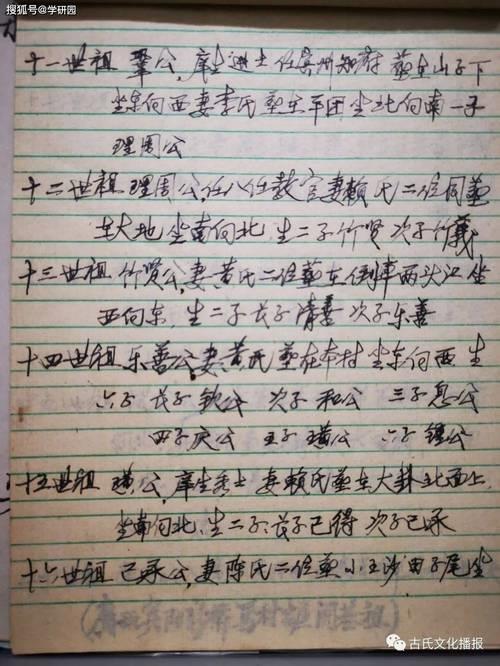 搜狐号@学研园
十一世祖 鞏公,庠生进士任宾州知府 葬在山子下
坐东向西妻李氏葬在平田坐北向南一子
理周公
十二世祖 理周公,任八任教官妻赖氏二位同葬
在大地 坐南向北 生二子竹贤 次子竹義
十三世祖 竹贤公,妻黄氏二位葬在倒车两头江坐
西向东,生二子长子清善 次子乐善
十四世祖 乐善公妻黄氏葬在本村坐东向西生
六子 长子钦公 次子和公 三子息公
四子庆公 五子璜公 六子鐘公
十五世祖 璜公,庠生秀士 妻赖氏葬在大卦北面上
坐南向北,生二子:长子已得 次子已承
十六世祖 已承公,妻陈氏二位葬小王沙田子尾坐
古氏文化播报